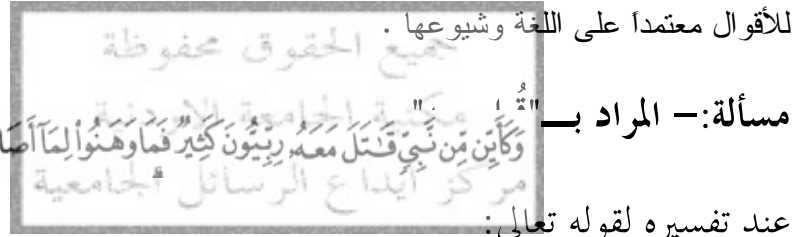 للأقوال معتمداً على اللغة وشيوعها .
جميع الحقوق محفوظة
مسألة:– المراد بــ"
مكتبة الجامعة الاردنية
وَكَأَيِّن مِّن نَّبِيٍّ قَٰتَلَ مَعَهُۥ رِبِّيُّونَ كَثِيرٌ فَمَا وَهَنُوا۟ لِمَآ أَصَا
مركز ايداع الرسائل الجامعية
عند تفسيره لقوله تعالى: